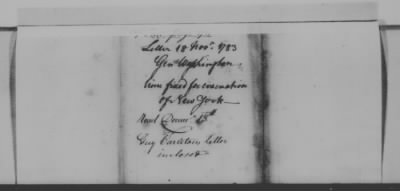 Letter 18 Novr. 1783
Genl Washington
time fixed for evacuation
of New York
Read Decemr 13th
Guy Carleton's letter
inclosed